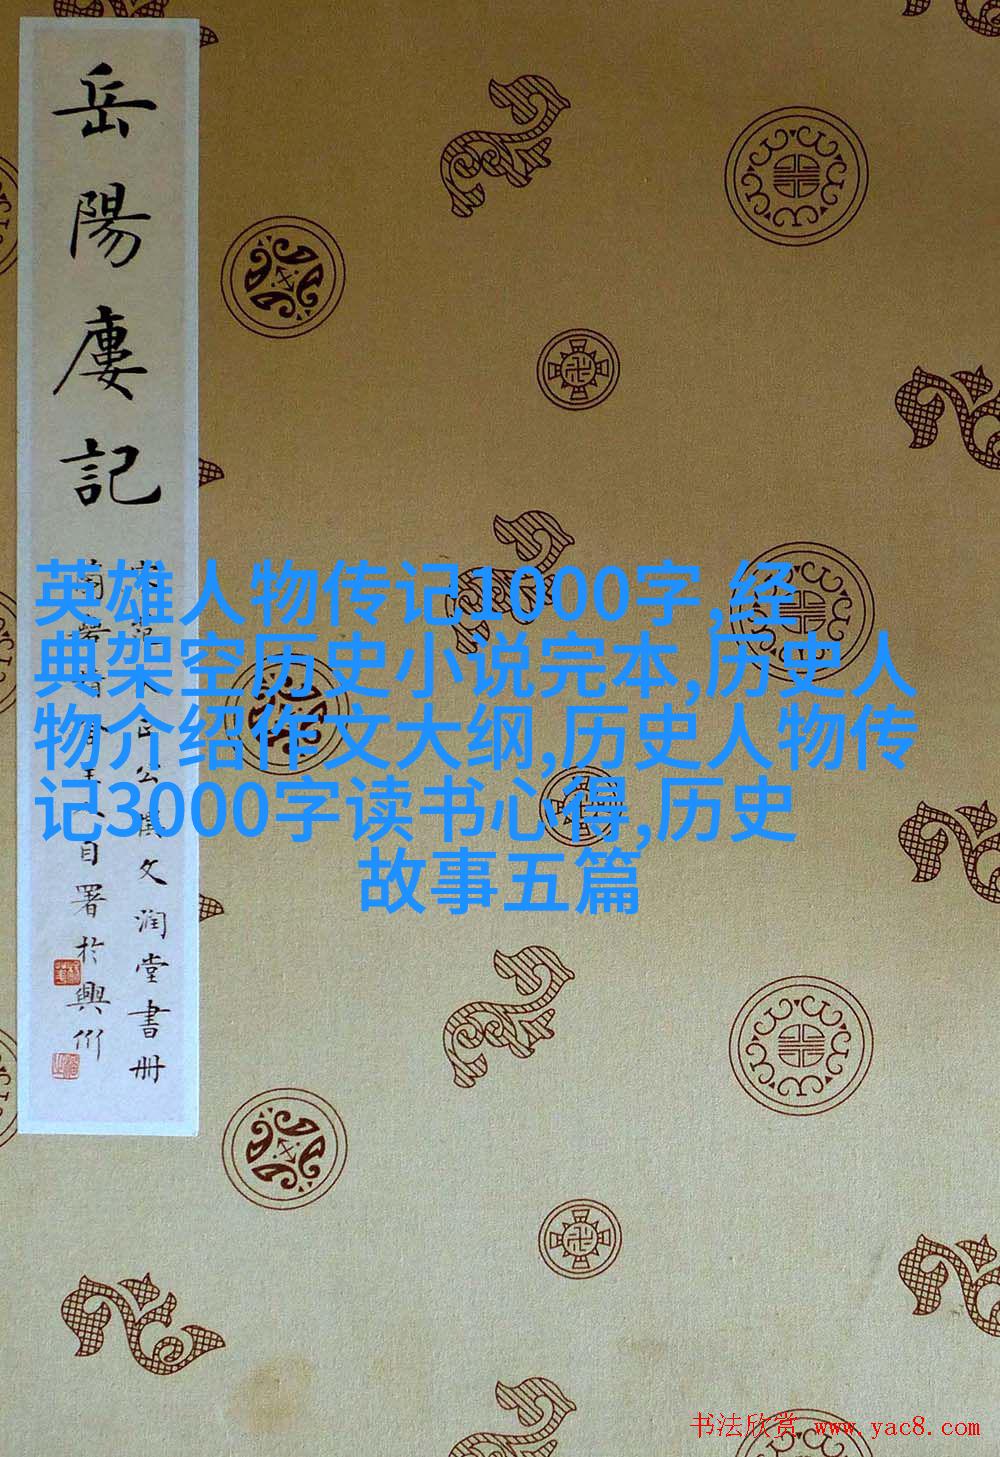 岳陽廔記
文潤堂書冊
署於興衍
英雄人物传记1000字,经
典架空历史小说完本,历史人
物介绍作文大纲,历史人物传
记3000字读书心得,历史
故事五篇
书法欣赏 www.yac8.com